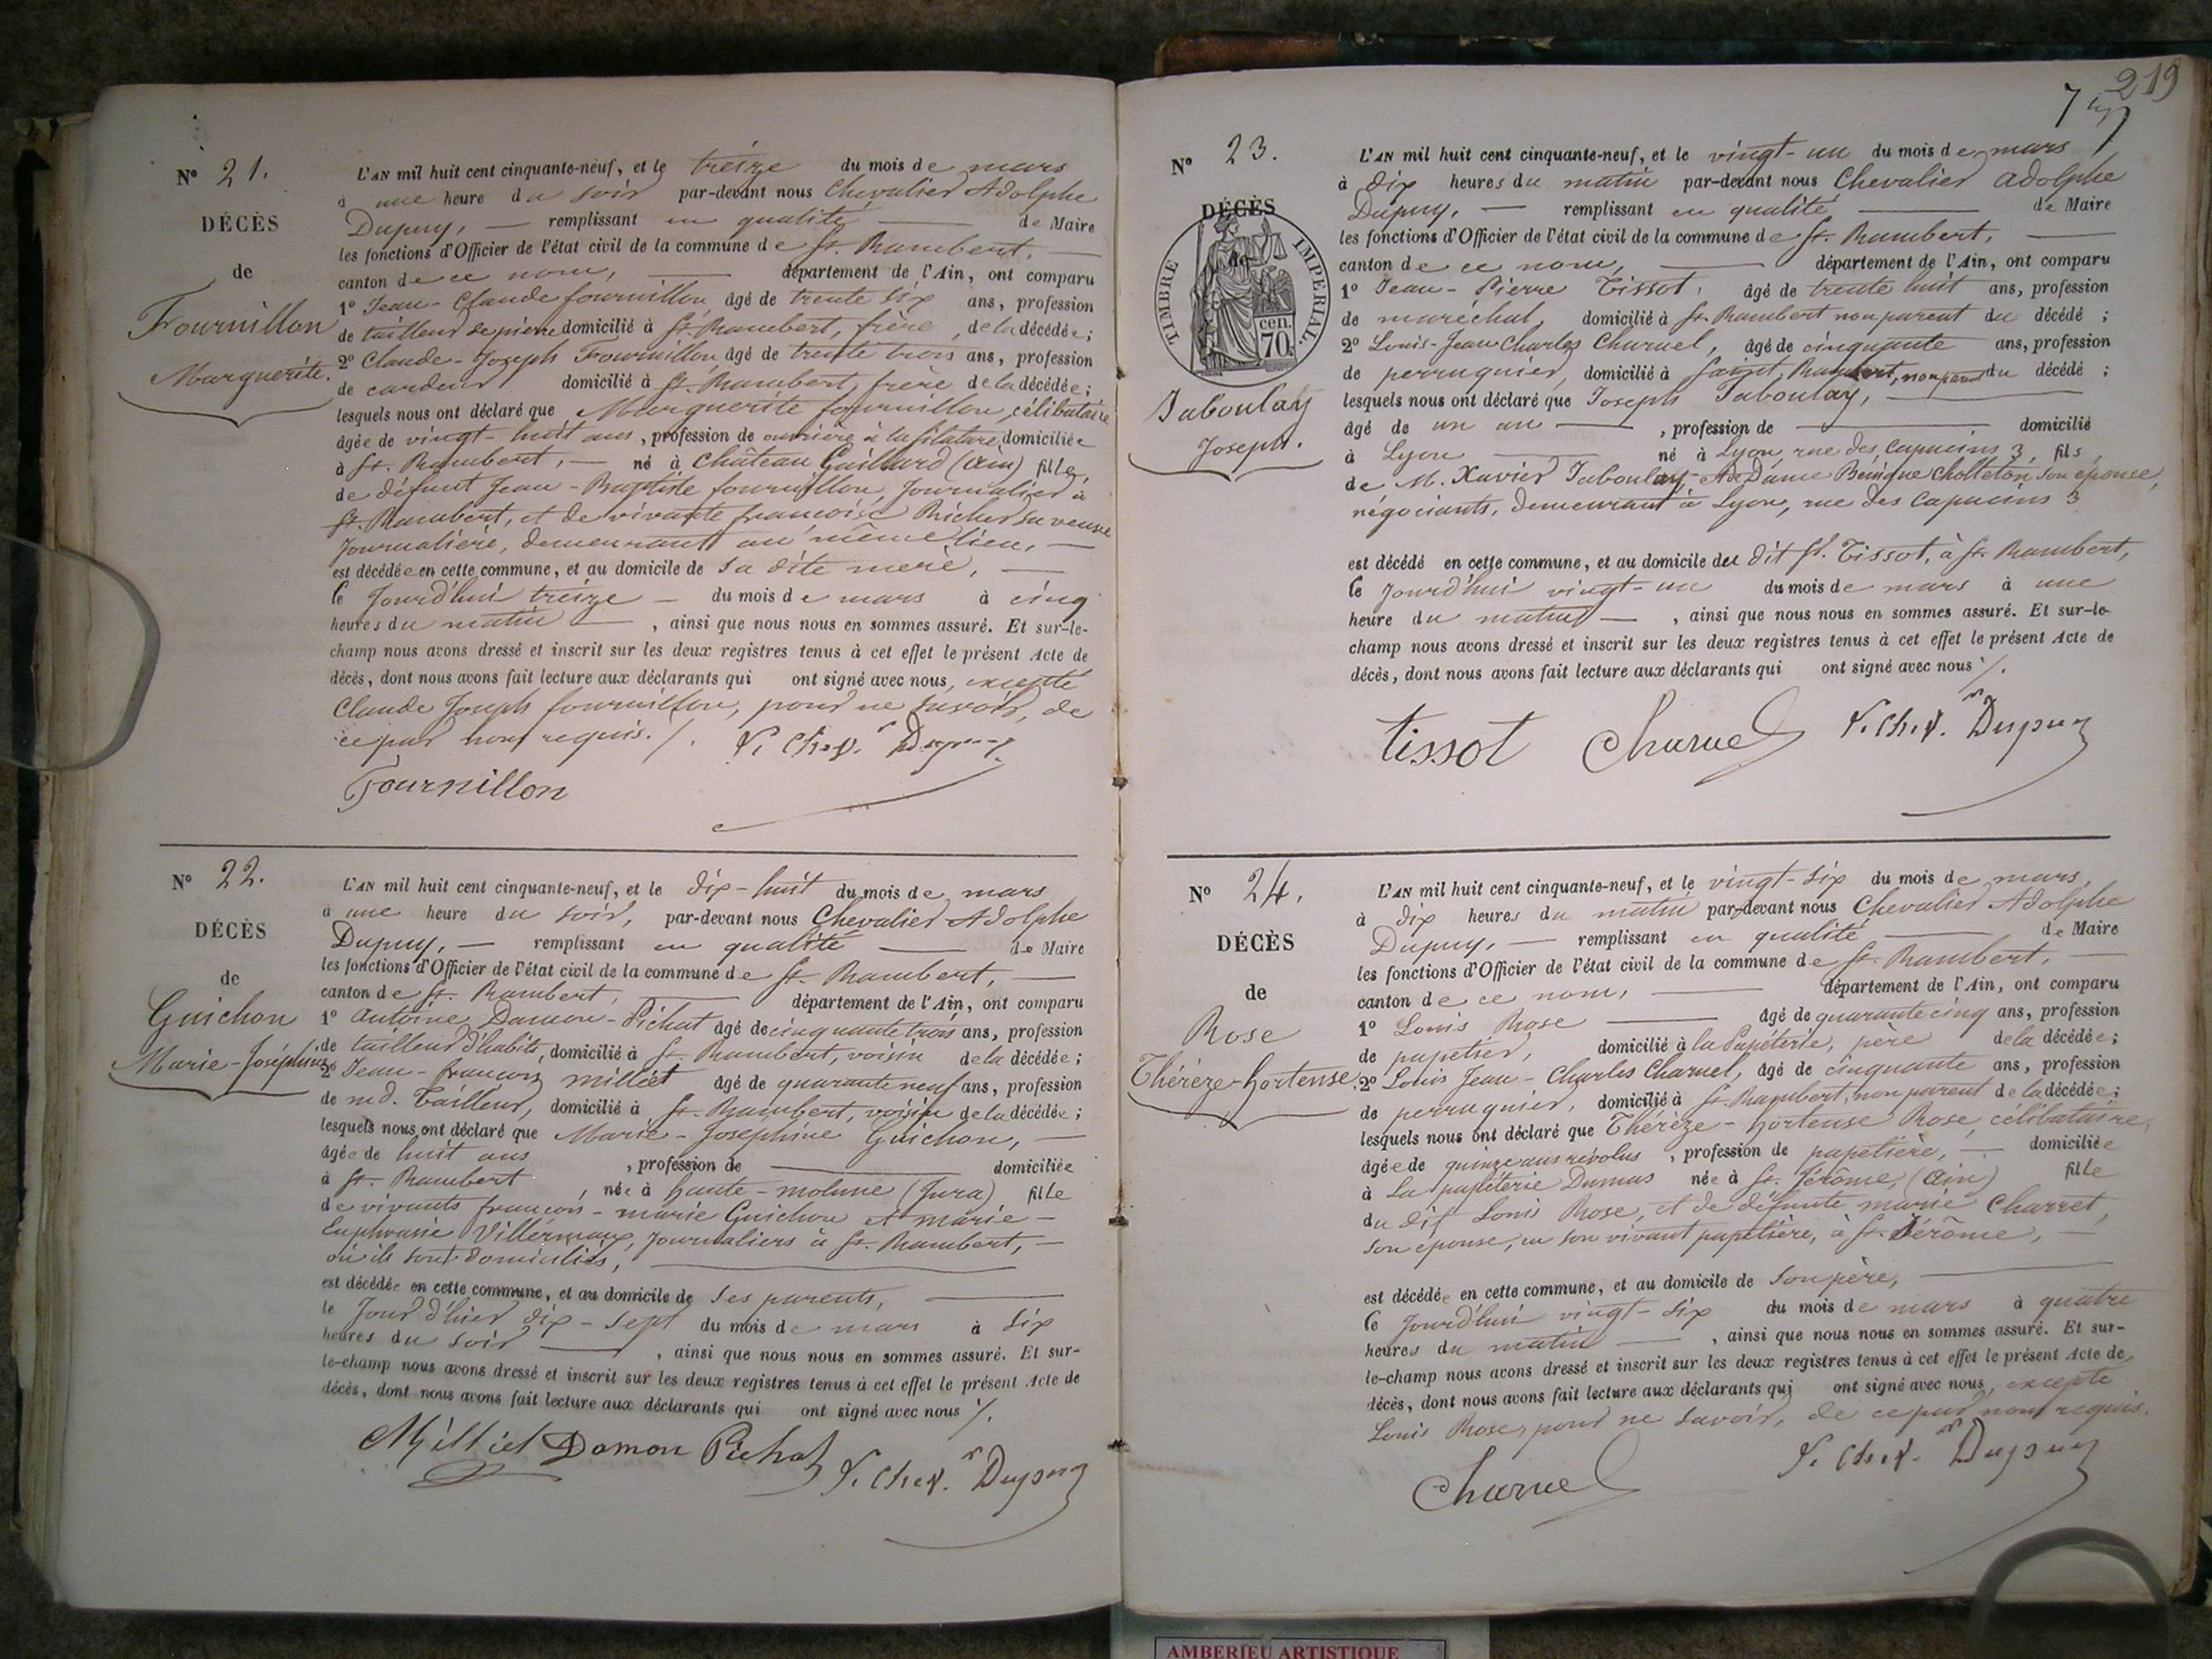 N° 21.
DÉCÈS
de
Fournillon
Marguerite.
L'AN mil huit cent cinquante-neuf, et le treize du mois de mars
à une heure du soir par-devant nous Chevalier Adolphe
Dupuy, — remplissant en qualité — de Maire
les fonctions d'Officier de l'état civil de la commune de St. Rambert, —
canton de ce nom, — département de l'Ain, ont comparu
1° Jean-Claude fournillon âgé de trente six ans, profession
de tailleur de pierre domicilié à St. Rambert, frère, de la décédée;
2° Claude-Joseph Fournillon âgé de trente trois ans, profession
de cardeur domicilié à St. Rambert, frère de la décédée;
lesquels nous ont déclaré que Marguerite fournillon, célibataire
âgée de vingt-huit ans, profession de ouvrière à la filature, domiciliée
à St. Rambert, — né à Château Gaillard (Ain) fille,
de défunt Jean-Baptiste fournillon, Journalier à
St. Rambert, et de vivante françoise Richer sa veuve
Journalière, demeurant au même lieu, —
est décédée en cette commune, et au domicile de sa dite mère, —
le Jourd'hui treize — du mois de mars à cinq
heures du matin —, ainsi que nous nous en sommes assuré. Et sur-le-
champ nous avons dressé et inscrit sur les deux registres tenus à cet effet le présent Acte de
décès, dont nous avons fait lecture aux déclarants qui ont signé avec nous, excepté
Claude Joseph fournillon, pour ne savoir, de
ce par nous requis./. V. Chev.r Dupuy
Fournillon
N° 22.
DÉCÈS
de
Guichon
Marie-Joséphine
L'AN mil huit cent cinquante-neuf, et le dix-huit du mois de mars
à une heure du soir, par-devant nous Chevalier Adolphe
Dupuy, — remplissant en qualité — de Maire
les fonctions d'Officier de l'état civil de la commune de St. Rambert, —
canton de St. Rambert, — département de l'Ain, ont comparu
1° Antoine Damon-Pichat âgé de cinquante trois ans, profession
de tailleur d'habits, domicilié à St. Rambert, voisin de la décédée;
2° Jean-françois Milliet âgé de quarante neuf ans, profession
de md. Tailleur, domicilié à St. Rambert, voisin de la décédée;
lesquels nous ont déclaré que Marie-Joséphine Guichon, —
âgée de huit ans, profession de — domiciliée
à St. Rambert, née à haute-molune (Jura) fille
de vivants françois-marie Guichon et marie-
Euphrasie Villermaux, Journaliers à St. Rambert, —
où ils sont domiciliés, —
est décédée en cette commune, et au domicile de ses parents, —
le Jour d'hier dix-sept du mois de mars à six
heures du soir —, ainsi que nous nous en sommes assuré. Et sur-
le-champ nous avons dressé et inscrit sur les deux registres tenus à cet effet le présent Acte de
décès, dont nous avons fait lecture aux déclarants qui ont signé avec nous ./.
Milliet Damon Pichat V. Chev.r Dupuy
219
N° 23.
DÉCÈS
de
TIMBRE IMPERIAL
70 cen.
Jaboulay
Joseph.
L'AN mil huit cent cinquante-neuf, et le vingt-un du mois de mars
à dix heures du matin par-devant nous Chevalier Adolphe
Dupuy, — remplissant en qualité — de Maire
les fonctions d'Officier de l'état civil de la commune de St. Rambert, —
canton de ce nom, — département de l'Ain, ont comparu
1° Jean-Pierre Tissot, âgé de trente huit ans, profession
de maréchal, domicilié à St. Rambert non parent du décédé;
2° Louis-Jean Charles Charuel, âgé de cinquante ans, profession
de perruquier, domicilié à Saint Rambert, non parent du décédé;
lesquels nous ont déclaré que Joseph Jaboulay, —
âgé de un an —, profession de — domicilié
à Lyon — né à Lyon, rue des Capucins 3, fils
de M. Xavier Jaboulay, et de Dame Benigne Cholleton son épouse,
négociants, demeurant à Lyon, rue des Capucins 3
est décédé en cette commune, et au domicile du dit Sr. Tissot, à St. Rambert,
le Jourd'hui vingt-un du mois de mars à une
heure du matin —, ainsi que nous nous en sommes assuré. Et sur-le-
champ nous avons dressé et inscrit sur les deux registres tenus à cet effet le présent Acte de
décès, dont nous avons fait lecture aux déclarants qui ont signé avec nous ./.
tissot Charuel V. Chev.r Dupuy
N° 24.
DÉCÈS
de
Rose
Thérèze-hortense.
L'AN mil huit cent cinquante-neuf, et le vingt-six du mois de mars,
à dix heures du matin par-devant nous Chevalier Adolphe
Dupuy, — remplissant en qualité — de Maire
les fonctions d'Officier de l'état civil de la commune de St. Rambert, —
canton de ce nom, — département de l'Ain, ont comparu
1° Louis Rose — âgé de quarante cinq ans, profession
de papetier, domicilié à la Papéterie, père de la décédée;
2° Louis Jean-Charles Charuel, âgé de cinquante ans, profession
de perruquier, domicilié à St. Rambert, non parent de la décédée;
lesquels nous ont déclaré que Thérèze-hortense Rose, célibataire,
âgée de quinze ans révolus, profession de papetière, — domiciliée
à La papéterie Dumas née à St. Jérôme, (Ain) fille
du dit Louis Rose, et de défunte marie Charret,
son épouse, en son vivant papetière, à St. Jérôme, —
est décédée en cette commune, et au domicile de son père, —
le Jourd'hui vingt-six du mois de mars à quatre
heures du matin —, ainsi que nous nous en sommes assuré. Et sur-
le-champ nous avons dressé et inscrit sur les deux registres tenus à cet effet le présent Acte de
décès, dont nous avons fait lecture aux déclarants qui ont signé avec nous, excepté
Louis Rose, pour ne savoir, de ce par nous requis.
Charuel V. Chev.r Dupuy
AMBERIEU ARTISTIQUE